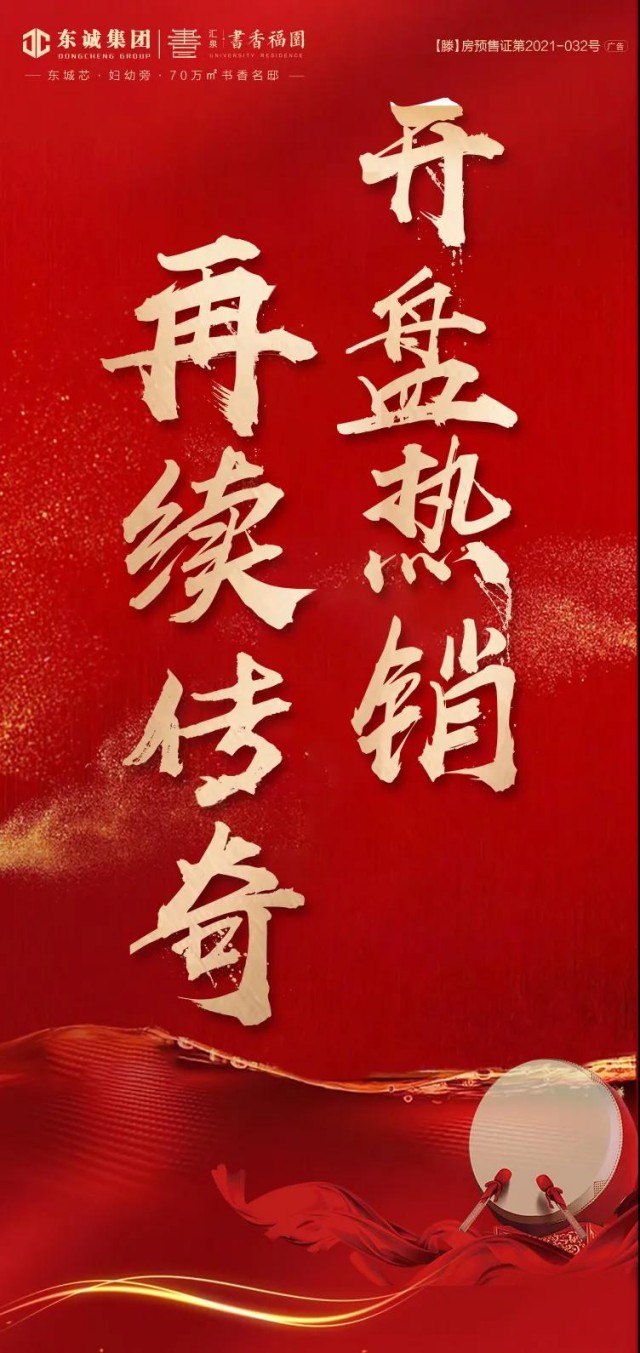 东诚集团
DONGCHENG GROUP
書
汇泉
書香福園
UNIVERSITY RESIDENCE
东城芯·妇幼旁·70万㎡书香名邸
【滕】房预售证第2021-032号 广告
开盘热销
再续传奇